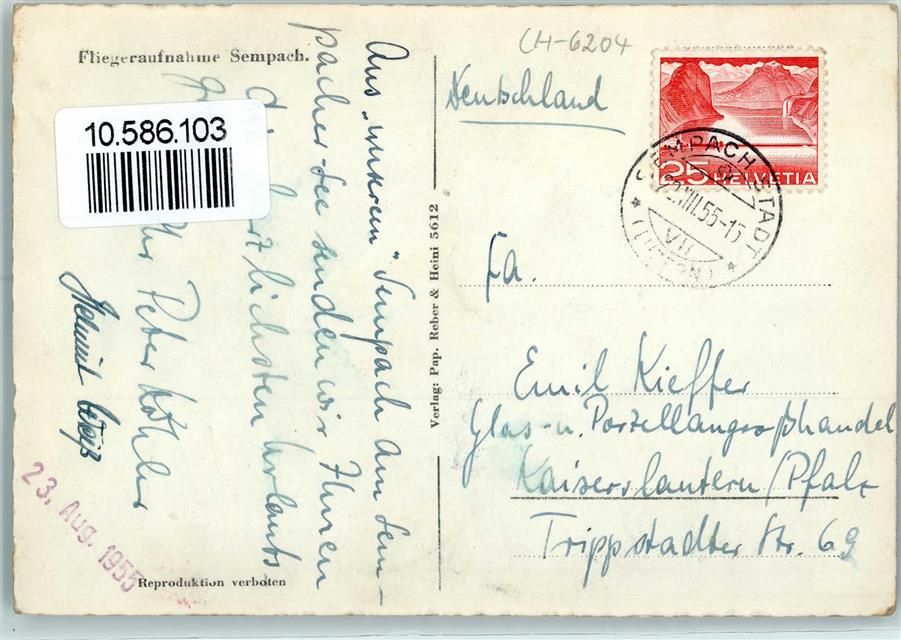 Fliegeraufnahme Sempach.
10.586.103
Aus "unserem" Sempach am Sem-
pacher-See senden wir Ihnen
die herzlichsten Urlaubs
Ihr Peter Köhler
Helmut Weiß
23. Aug. 1955
Reproduktion verboten
Verlag: Pap. Reber & Heini 5612
CH-6204
Deutschland
25 HELVETIA
SEMPACH STADT
VIII.55-15
VII
(LUZERN)
Fa.
Emil Kieffer
Glas- u. Porzellangroßhandel
Kaiserslautern/Pfalz
Trippstadter Str. 69